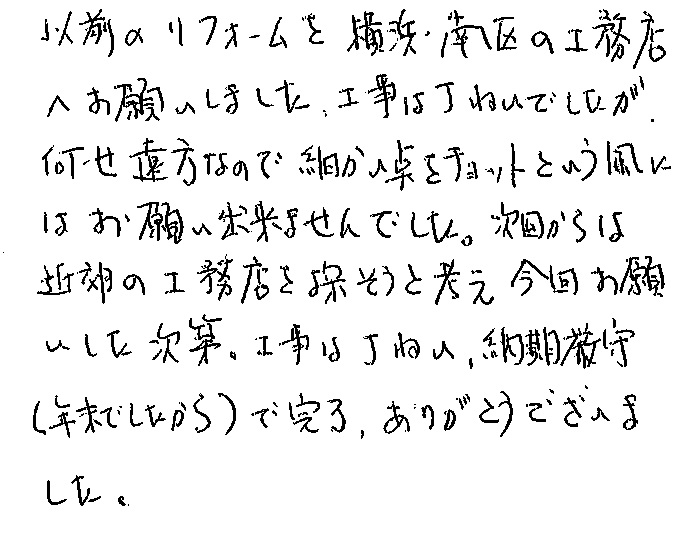 以前のリフォームを横浜・南区の工務店
へお願いしました、工事は丁ねいでしたが、
何せ遠方なので細かい点をチョットという風に
はお願い出来ませんでした。次回からは
近郊の工務店を探そうと考え今回お願
いした次第。工事は丁ねい、納期厳守
(年末でしたから)で完了、ありがとうございま
した。